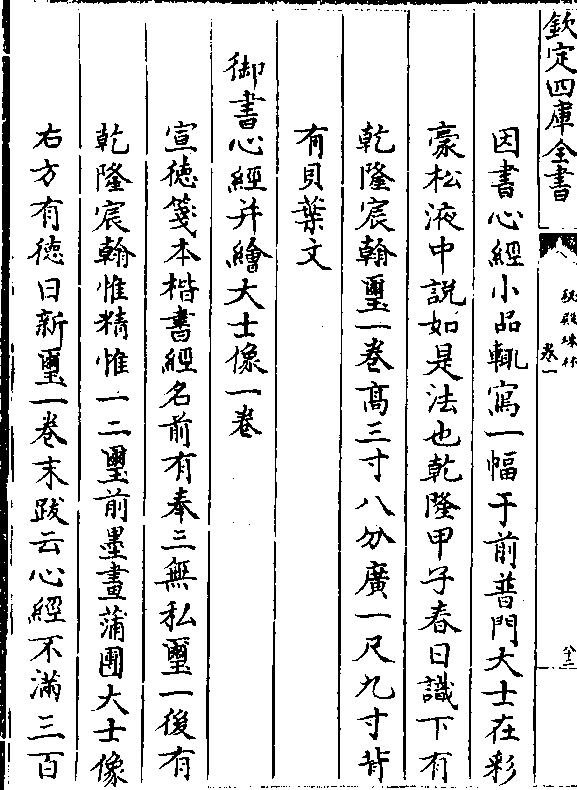 欽定四庫全書
祕殿珠林
卷一
因書心經小品輒寫一幅于前普門大士在彩
豪松液中説如是法也乾隆甲子春日識下有
乾隆宸翰璽一卷髙三寸八分廣一尺九寸背
有貝葉文
御書心經并繪大士像一卷
宣徳箋本楷書經名前有奉三無私璽一後有
乾隆宸翰惟精惟一二璽前墨畫蒲團大士像
右方有徳日新璽一卷末跋云心經不滿三百